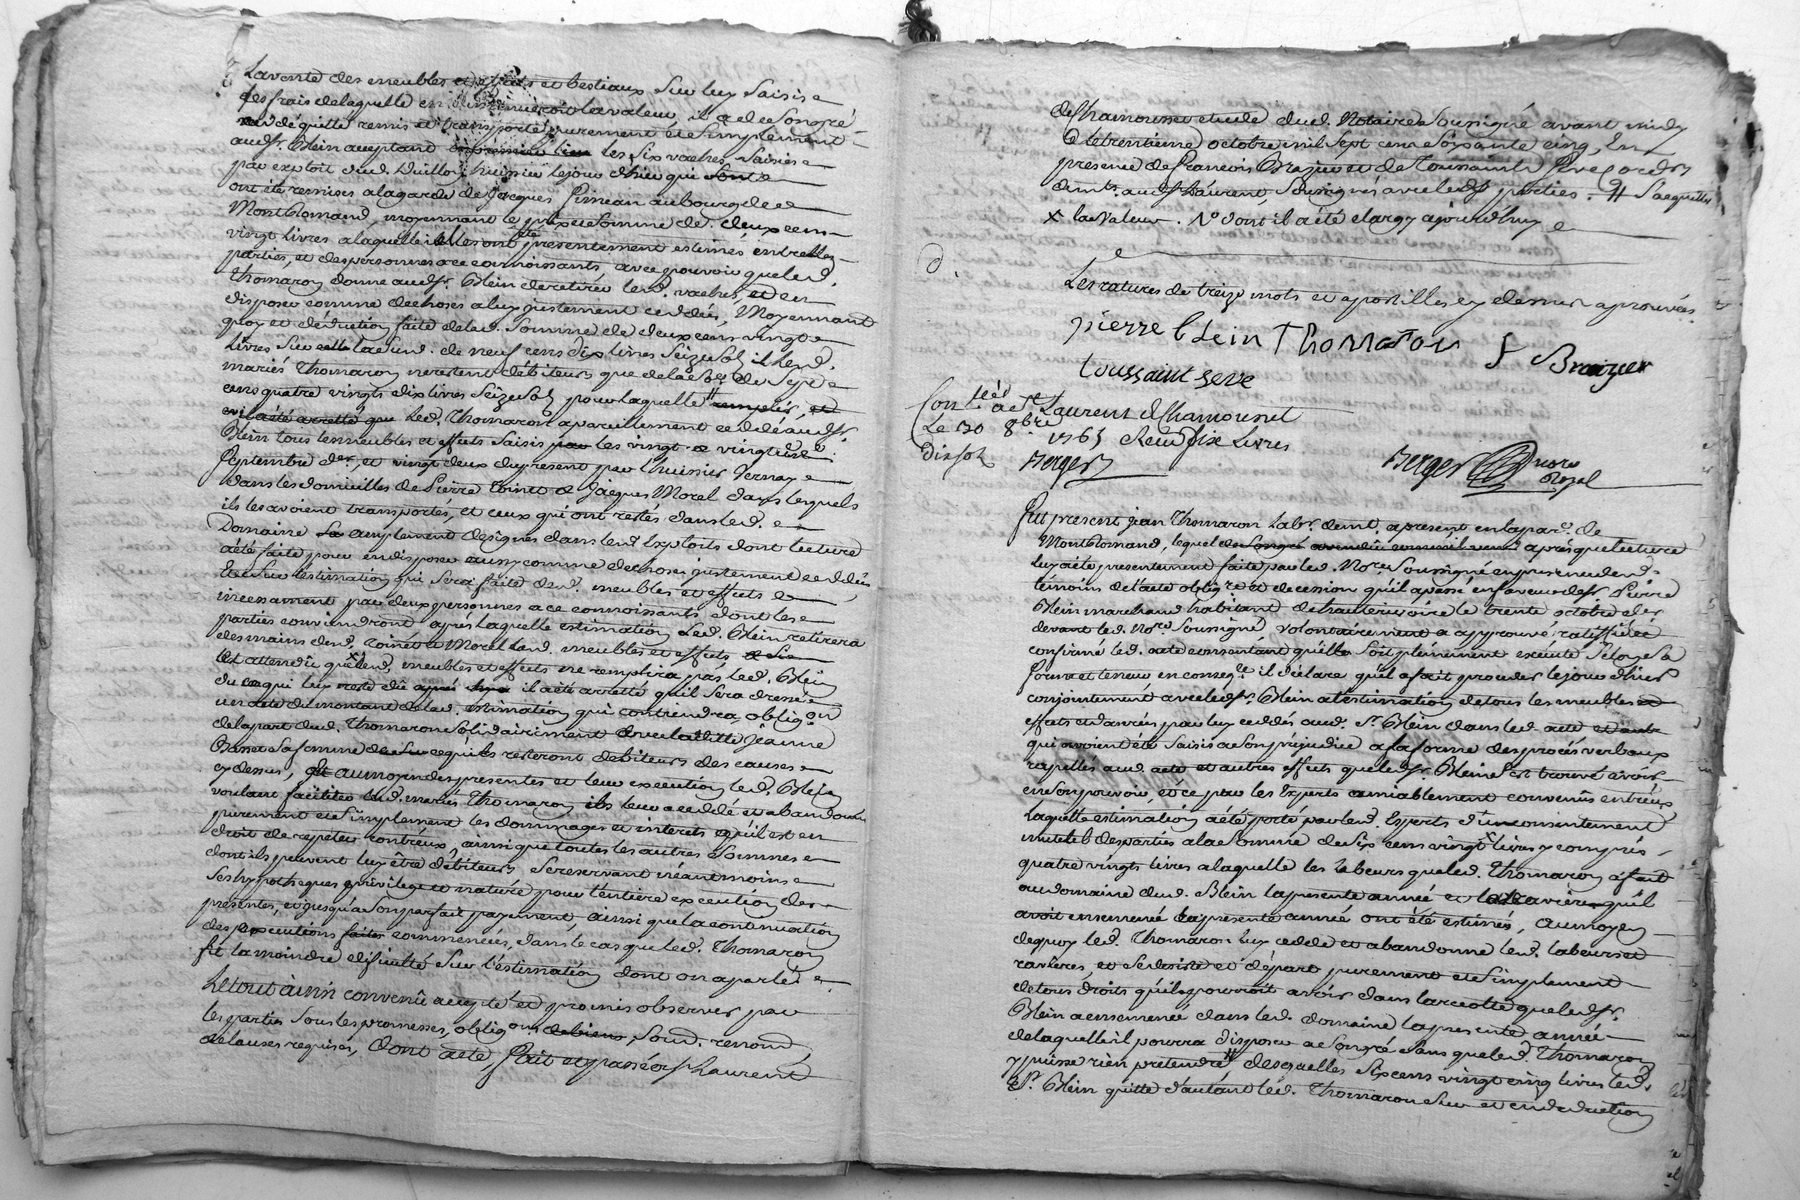 La vente des meubles et effets et bestiaux sur luy saisis
les frais de laquelle en diminueroit la valeur, il a de son gré
remis et transporté purement et simplement
audt Sr. Blein acceptant les six vaches saisies
par exploit dud. huissier le jour d'hier qui
ont été remises a la garde de Jacques Pirnean au bourg de
Montromand, moyennant le prix et somme de deux cens
vingt livres a laquelle elles ont été presentement estimés entre les
parties, et des personnes a ce connoissants, avec pouvoir que led.
Thomaron donne audt Sr. Blein de retirer lesd. vaches, et en
disposer comme de choses a luy justement ceddés, Moyennant
quoy et déduction faite de lad. somme de deux cens vingt
livres sur celle de neuf cens dix livres seize sols il lesd.
mariés Thomaron ne restent débiteurs que de la so. de sept
cens quatre vingts dix livres seize sols pour laquelle
que led. Thomaron a pareillement ceddé audt Sr.
Blein tous les meubles et effets saisis les vingt et vingt un
septembre der. et vingt deux du present par l'huissier Vernay
dans les domicilles de Pierre Toinet et Jacques Morel dans lesquels
ils les avoient transportés, et ceux qui ont restés dans led.
Domaine amplement designés dans led. Exploits dont lecture
a été faite pour en disposer aussy comme de choses justement ceddées,
Et sur l'estimation qui sera faite desd. meubles et effets
incessament par deux personnes a ce connoissants dont les
parties conviendront après laquelle estimation Led. Blein retirera
des mains desd. Toinet et Morel lesd. meubles et effets
Et attendu que lesd. meubles et effets ne remplira pas led. Blein
du ce qui luy reste dû il a été arretté qu'il sera dressé
un acte du montant de lad. estimation qui contiendra oblig.on
de la part dud. Thomaron solidairement avec Jeanne
Basset sa femme de ce qu'ils resteront debiteurs des causes
cy dessus, au moyen des presentes et leur execution led. Blein
voulant faciliter lesd. mariés Thomaron leur a ceddé et abandonné
purement et simplement les dommages et interets qu'il est en
droit de repeter contr'eux, ainsi que toutes les autres sommes
dont ils peuvent luy être débiteurs, se reservant néantmoins
ses hypotheques privilege et nature pour l'entiere execution des
presentes, et jusqu'a son parfait payement, ainsi que la continuation
des exécutions commencées, dans le cas que led. Thomaron
fit la moindre dificulté sur l'estimation dont on a parlé
Le tout ainsi convenû accepté et promis observer par
les parties sous les promesses, oblig.ons soum. renon.
et clauses requises, dont acte, fait et passé a St. Laurent
de Chamousset etude dud. Notaire soussigné avant midy
le trentieme octobre mil sept cens soixante cinq, En
presence de François Brazier et de Toussaint Seve
demts. aud. St. Laurent, soussignés avec lesd. parties. # s'acquitter
x la valeur. No dont il a été elargy ajourd'huy
d.
Les ratures de treize mots et apostilles cy dessus aprouvés.
pierre blein Thomaron f Brazier
toussaint seve
Conllé a St Laurent de Chamousset
Le 30 8bre 1765 Reçu six livres
dix sols Berger
Berger nore Royal
Fut present jean Thomaron labr. demt. a present en la par.e de
Montromand, lequel après que lecture
luy a été presentement faite par led. Nore. soussigné en presence desd.
témoins de l'acte oblig.on et de cession qu'il a passé en faveur de Sr. Pierre
Blein marchand habitant de hauterivoire le trente octobre der
devant led. Nore. soussigné, volontairement a approuvé ratiffié et
confirmé led. acte consentant qu'elle soit pleinement executé selon sa
forme et teneur en conseq.ce il déclare qu'il a fait proceder le jour d'hier
conjointement avec led. Sr. Blein a l'estimation de tous les meubles
effets et denrées par luy ceddés aud. Sr. Blein dans led. acte
qui avoient été saisis a son préjudice a la forme des procés verbaux
rapellés aud. acte et autres effets que led. Sr. Blein s'est trouvé avoir
en son pouvoir, et ce par les Experts amiablement convenûs entr'eux
laquelle estimation a été porté par lesd. Experts d'un consentement
mutuel des parties a la somme de six cens vingt livres y compris
quatre vingts livres a laquelle les labeurs que led. Thomaron a fait
au domaine dud. Blein la presente année et qu'il
avoit ensemencé la presente année ont été estimés, au moyen
de quoy led. Thomaron luy cedde et abandonne lesd. labeurs et
ravieres, et se desiste et départ purement et simplement
de tous droits qu'il pourroit avoir dans la recolte que led. Sr.
Blein a ensemencé dans led. domaine la presente année
de laquelle il pourra disposer a son gré sans que led. Thomaron
y puisse rien prétendre desquelles six cens vingt cinq livres led.
Sr. Blein quitte d'autant led. Thomaron sur et en déduction